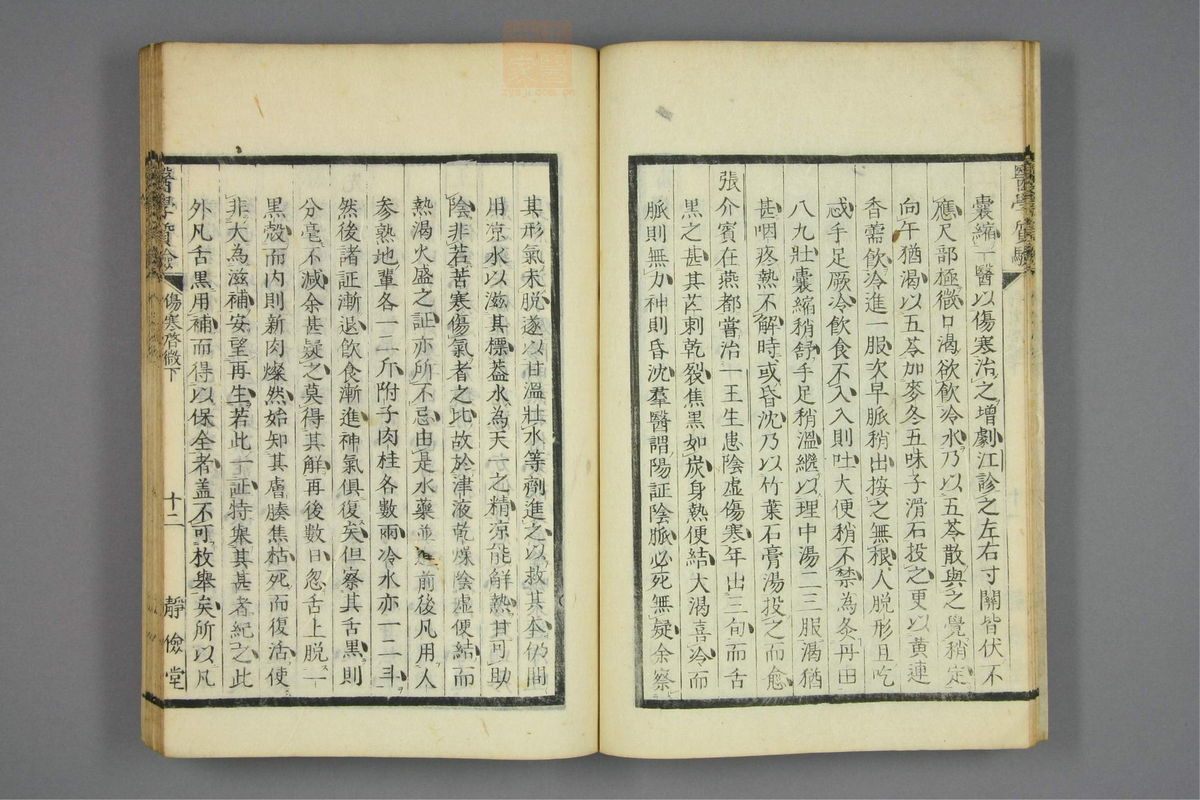 醫學質驗
囊縮一醫以傷寒治之增劇江診之左右寸關皆伏不
應尺部極微口渴欲飲冷水乃以五苓散與之覺稍定
向午猶渴以五苓加麥冬五味子滑石投之更以黃連
香薷飲冷進一服次早脈稍出按之無根人脫形且吃
忒手足厥冷飲食不入入則吐大便稍不禁為灸丹田
八九壯囊縮稍舒手足稍溫繼以理中湯二三服渴猶
甚咽疼熱不解時或昏沈乃以竹葉石膏湯投之而愈
張介賓在燕都嘗治一王生患陰虛傷寒年出三旬而舌
黑之甚其芒刺乾裂焦黑如炭身熱便結大渴喜冷而
脈則無力神則昏沈羣醫謂陽証陰脈必死無疑余察
其形氣未脫遂以甘溫壯水等劑進之以救其本仍間
用凉水以滋其標葢水為天一之精凉能解熱甘可助
陰非若苦寒傷氣者之比故於津液乾燥陰虛便結而
熱渴火盛之証亦所不忌由是水藥並進前後凡用人
参熟地輩各一二斤附子肉桂各數兩冷水亦一二斗
然後諸証漸退飲食漸進神氣俱復矣但察其舌黑則
分毫不減余甚疑之莫得其解再後數日忽舌上脫一
黑殼而內則新肉燦然始知其膚腠焦枯死而復活使
非大為滋補安望再生若此一証特舉其甚者紀之此
外凡舌黑用補而得以保全者盖不可枚舉矣所以凡
醫學質驗
傷寒啓微下
十二
靜儉堂